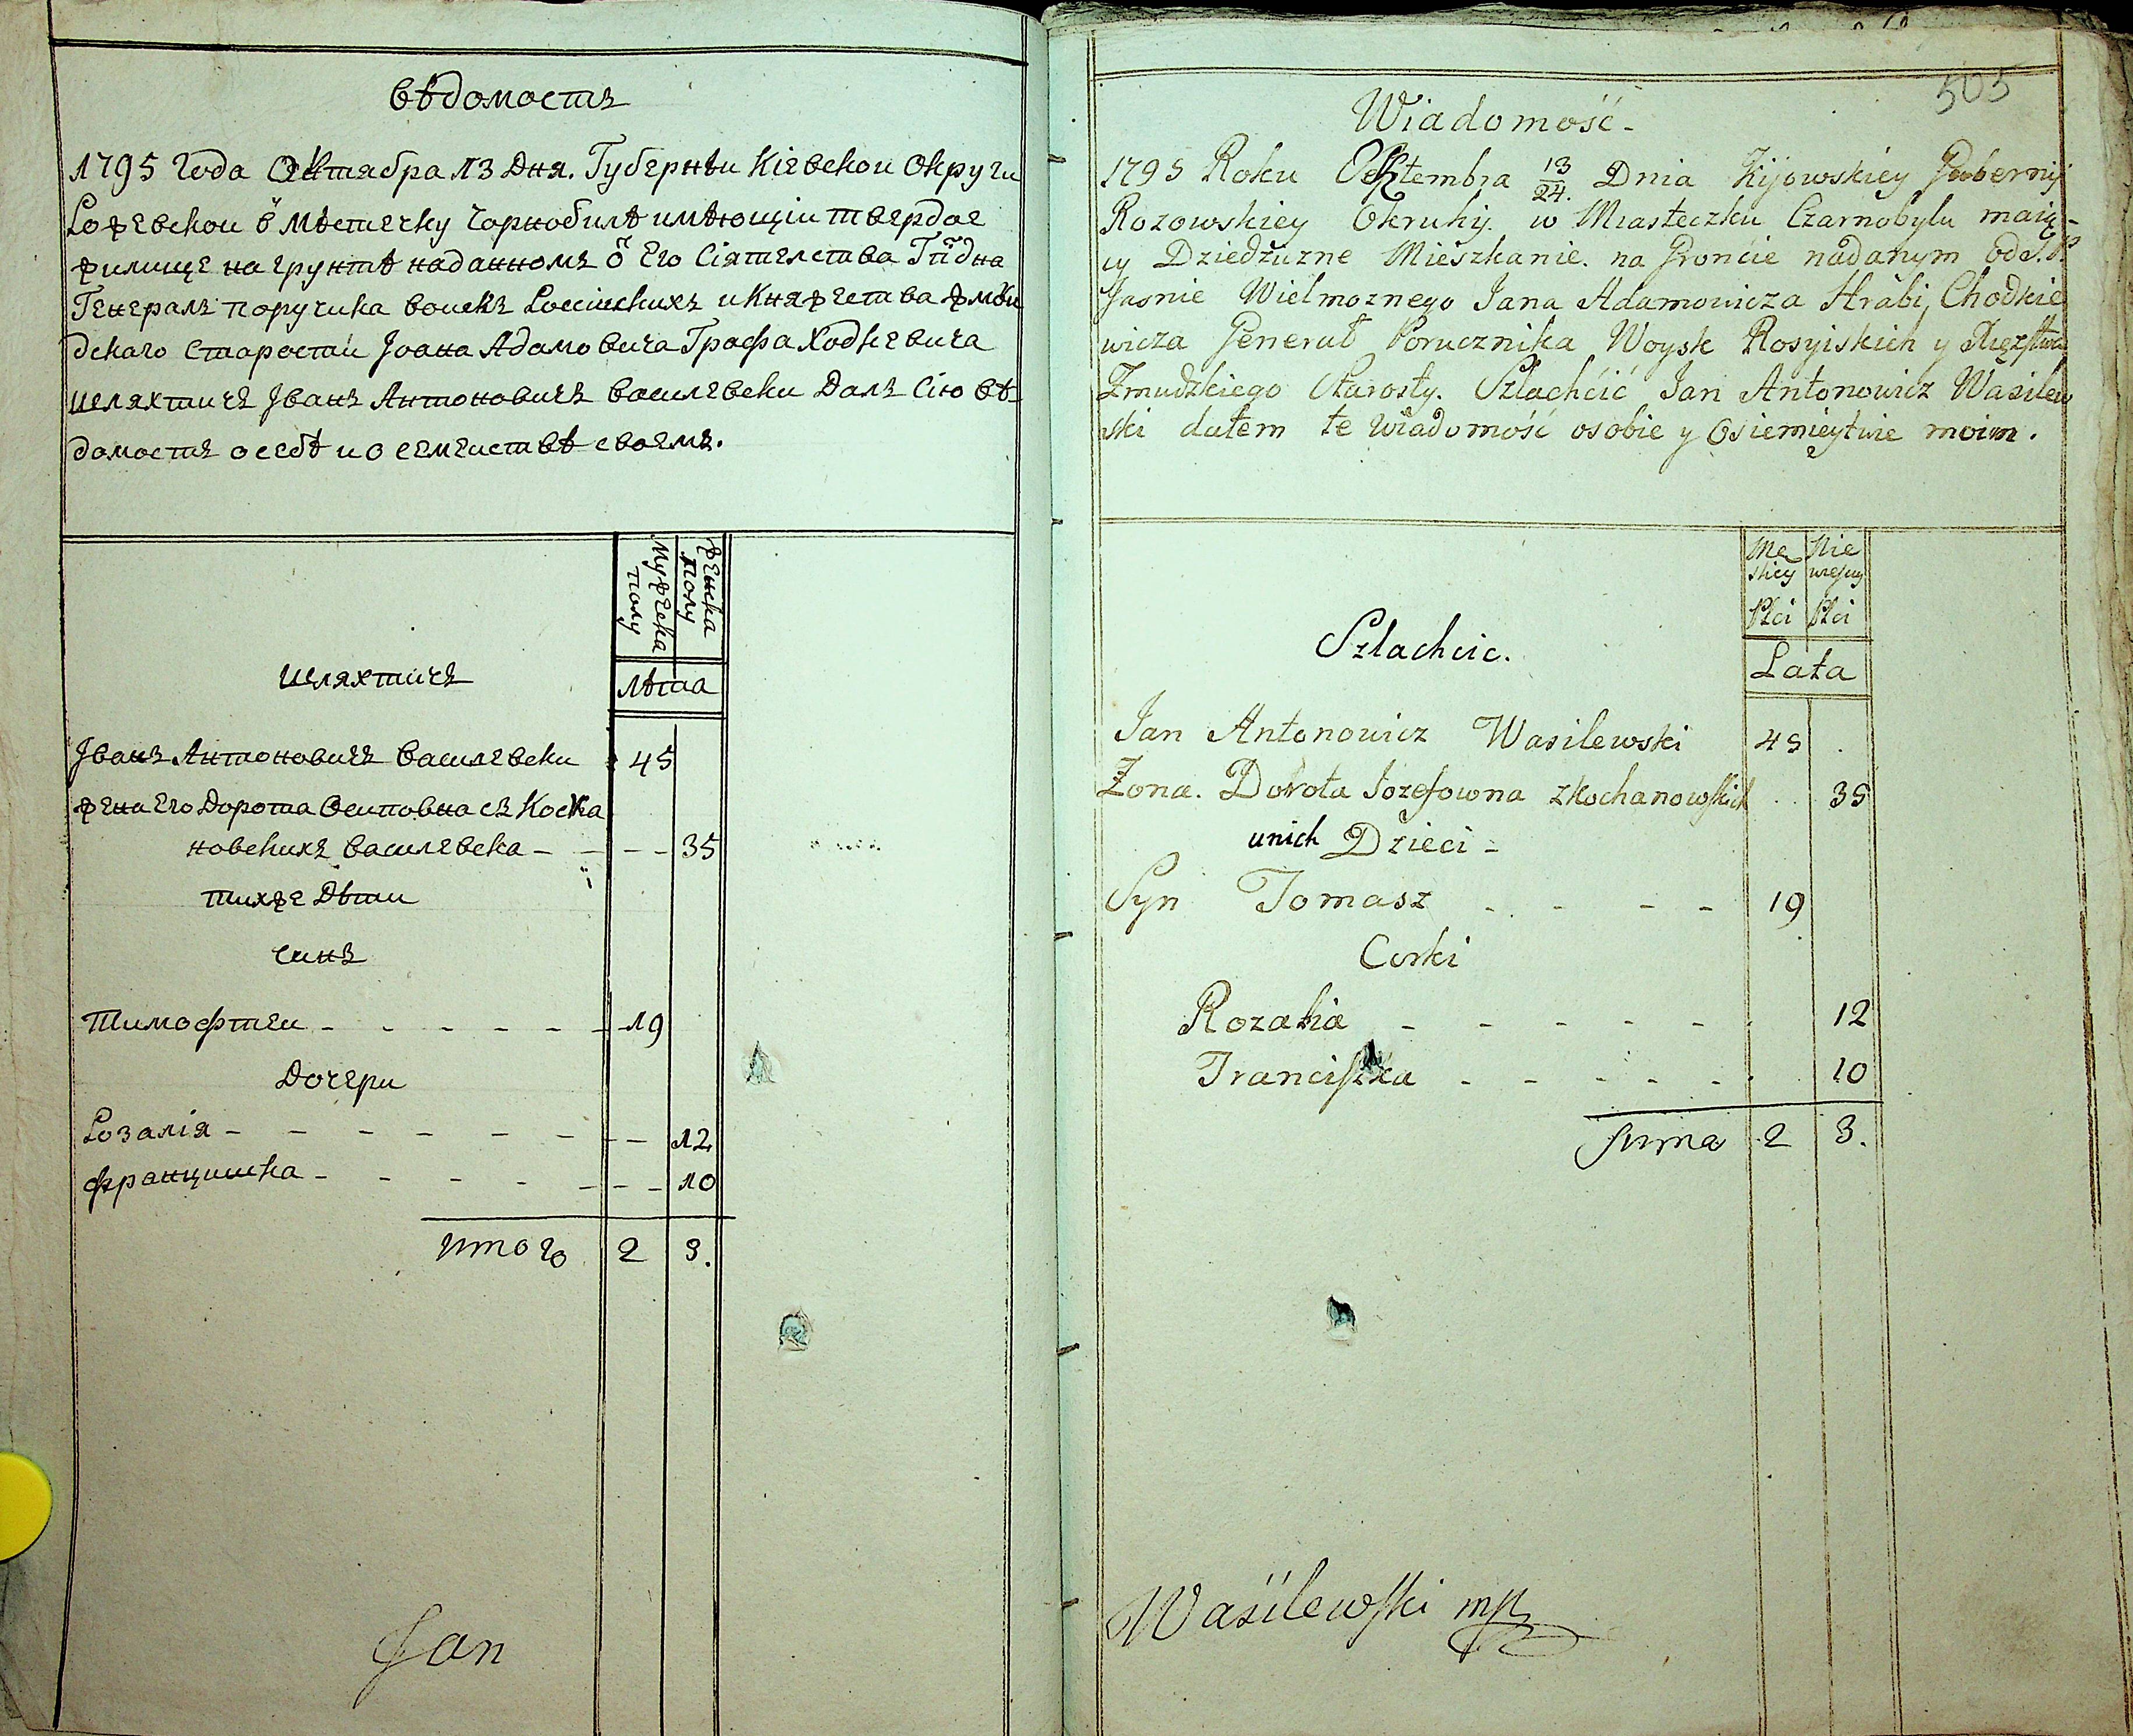 вѣдомостъ
1795 года Октабра 13 дня. Губернѣи Кіевскои Округи
Рожевскои в мѣстечку Чорнобилѣ имѣющіи твердое
жилище на грунтѣ наданномъ Его Сіятелства
Генералъ поручика воискъ Россиискихъ и Княжества
дскаго старости Јоана Адамовича Графа Ходкевича
шеляхтичъ Јванъ Антоновичъ Василевски Далъ сію вѣ
домостъ о себѣ и о семеиствѣ своемъ.
мужеска полу
женска полу
шеляхтичъ
лѣта
Јванъ Антоновичъ Василевски 45
жена Его Дорота Осиповна съ Коска
новскихъ Василевска - - - - 35
тихже Дѣти
синъ
Тимофтеи - - - - - - 19
Дочери
Розалія - - - - - - - - 12
Францишка - - - - - - - 10
итого 2 3.
Jan
505
Wiadomość -
1795 Roku Oktembra 13/24. Dnia Kijowskiey Gubernij
Rozowskiey Okruhij. w Miasteczku Czarnobylu maią-
cy Dziedźiczne Mieszkanie. na Gronćie nadanym od
Jasnie Wielmoznego Jana Adamowicza Hrabi, Chodkie
wicza Generał Porucznika Woysk Rosyiskich y Xięzstwa
Zmudzkiego Starosty. Szlachćić Jan Antonowicz Wasilew
ski dałem te wiadomość osobie y Osiemieytwie moim.
Mę skiey Płci
Nie wiesciey Płci
Szlachcic.
Lata
Jan Antonowicz Wasilewski 45 .
Zona. Dorota Jozefowna zkochanowskich . . 35
unich Dzieci -
Syn Tomasz - - - - 19
Corki
Rozalia - - - - - . 12
Franciszka - - - - - . . 10
suma 2 3.
Wasilewski mp